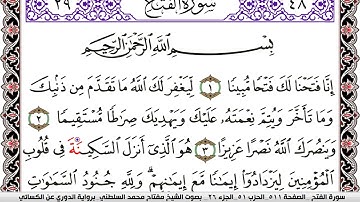 ٢٩ سُورَةُ الفَتْحِ ٤٨
بِسْمِ اللَّهِ الرَّحْمَٰنِ الرَّحِيمِ
إِنَّا فَتَحْنَا لَكَ فَتْحًا مُّبِينًا ١ لِّيَغْفِرَ لَكَ اللَّهُ مَا تَقَدَّمَ مِن ذَنۢبِكَ
وَمَا تَأَخَّرَ وَيُتِمَّ نِعْمَتَهُۥ عَلَيْكَ وَيَهْدِيَكَ صِرَٰطًا مُّسْتَقِيمًا ٢
وَيَنصُرَكَ اللَّهُ نَصْرًا عَزِيزًا ٣ هُوَ الَّذِي أَنزَلَ السَّكِينَةَ فِي قُلُوبِ
الْمُؤْمِنِينَ لِيَزْدَادُوٓا۟ إِيمَٰنًا مَّعَ إِيمَٰنِهِمْ وَلِلَّهِ جُنُودُ السَّمَٰوَٰتِ
سورة الفتح الصفحة ٥١١ الحزب ٥١ الجزء ٢٦ بصوت الشيخ مفتاح محمد السلطني برواية الدوري عن الكسائي